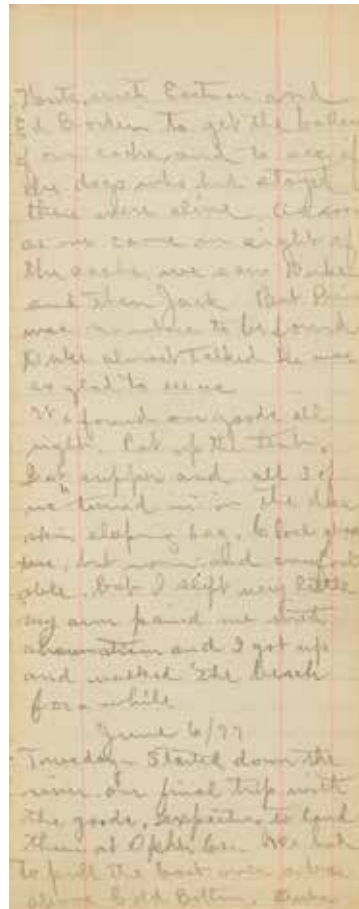 with Eastman and
Ed Borden to get the balance
of our cache, and to see if
the dogs who had stayed
there were alive. As soon
as we came in sight of
the cache, we saw Duke
and then Jack. But Prin
was nowhere to be found
Duke almost talked he was
so glad to see us
We found our goods all
right. Put up the tent,
Got supper and all 3 of
us turned in in the deer
skin sleeping bag, a close
but warm and comfort
able, but I slept very little
my arm pained me with
rheumatism and I got up
and walked the beach
for a while
June 6/99
Tuesday - Started down the
river our final trip with
the goods, expecting to land
them at Ophir Cr. We had
to pull the boat over a bar
above Gold Bottom. Duke